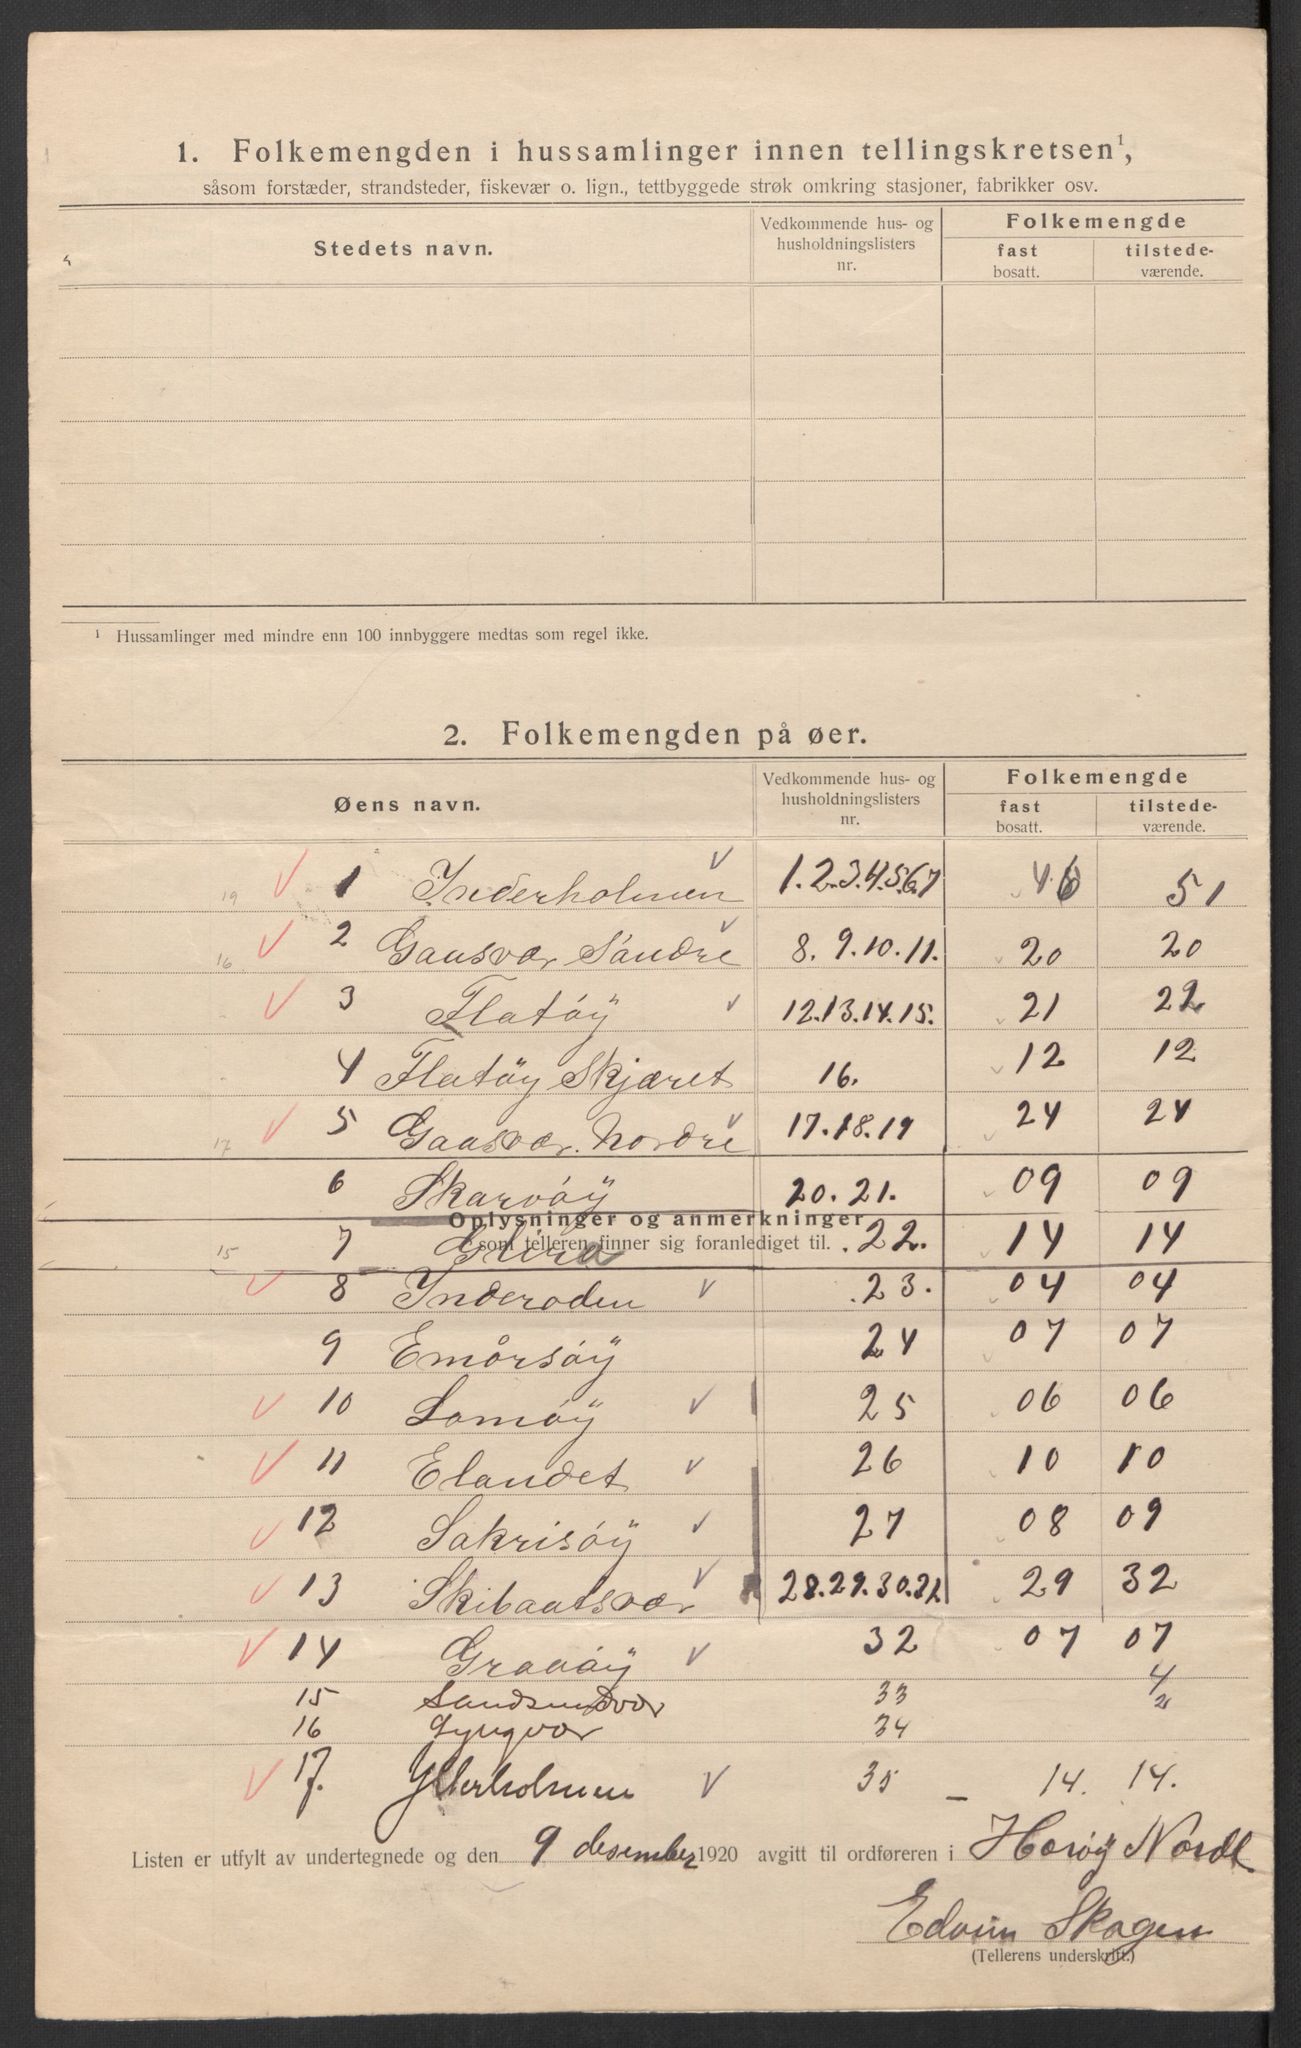 1. Folkemengden i hussamlinger innen tellingskretsen¹,
såsom forstæder, strandsteder, fiskevær o. lign., tettbyggede strøk omkring stasjoner, fabrikker osv.
Stedets navn. Vedkommende hus- og husholdningslisters nr. Folkemengde
fast bosatt. tilstede-værende.
¹ Hussamlinger med mindre enn 100 innbyggere medtas som regel ikke.
2. Folkemengden på øer.
Øens navn. Vedkommende hus- og husholdningslisters nr. Folkemengde
fast bosatt. tilstede-værende.
19 √ 1 Inderholmen √ 1.2.3.4.5.6.7 46 51
16 √ 2 Gaasvær Søndre √ 8. 9.10.11. 20 20
√ 3 Flatöÿ √ 12.13.14.15. 21 22
4 Flatöÿ Skjæret 16. 12 12
17 √ 5 Gaasvær. Nordre √ 17.18.19 24 24
6 Skarvöÿ 20.21. 09 09
Oplysninger og anmerkninger
15 7 22. 14 14
som telleren finner sig foranlediget til.
√ 8 Inderoden √ 23. 04 04
9 Emårsöÿ 24 07 07
√ 10 Lamöÿ √ 25 06 06
√ 11 Elandet √ 26 10 10
√ 12 Sakrisöÿ √ 27 08 09
√ 13 Skibaatsvær √ 28.29.30.31. 29 32
√ 14 Graaöÿ √ 32 07 07
15 Sandsundvær 33 4
16 Lyngvær 34 2
√ 17. Ytterholmen √ 35 – 14. 14.
Listen er utfylt av undertegnede og den 9 desember 1920 avgitt til ordføreren i Heröÿ Nordl
Edvin Skogen
(Tellerens underskrift.)